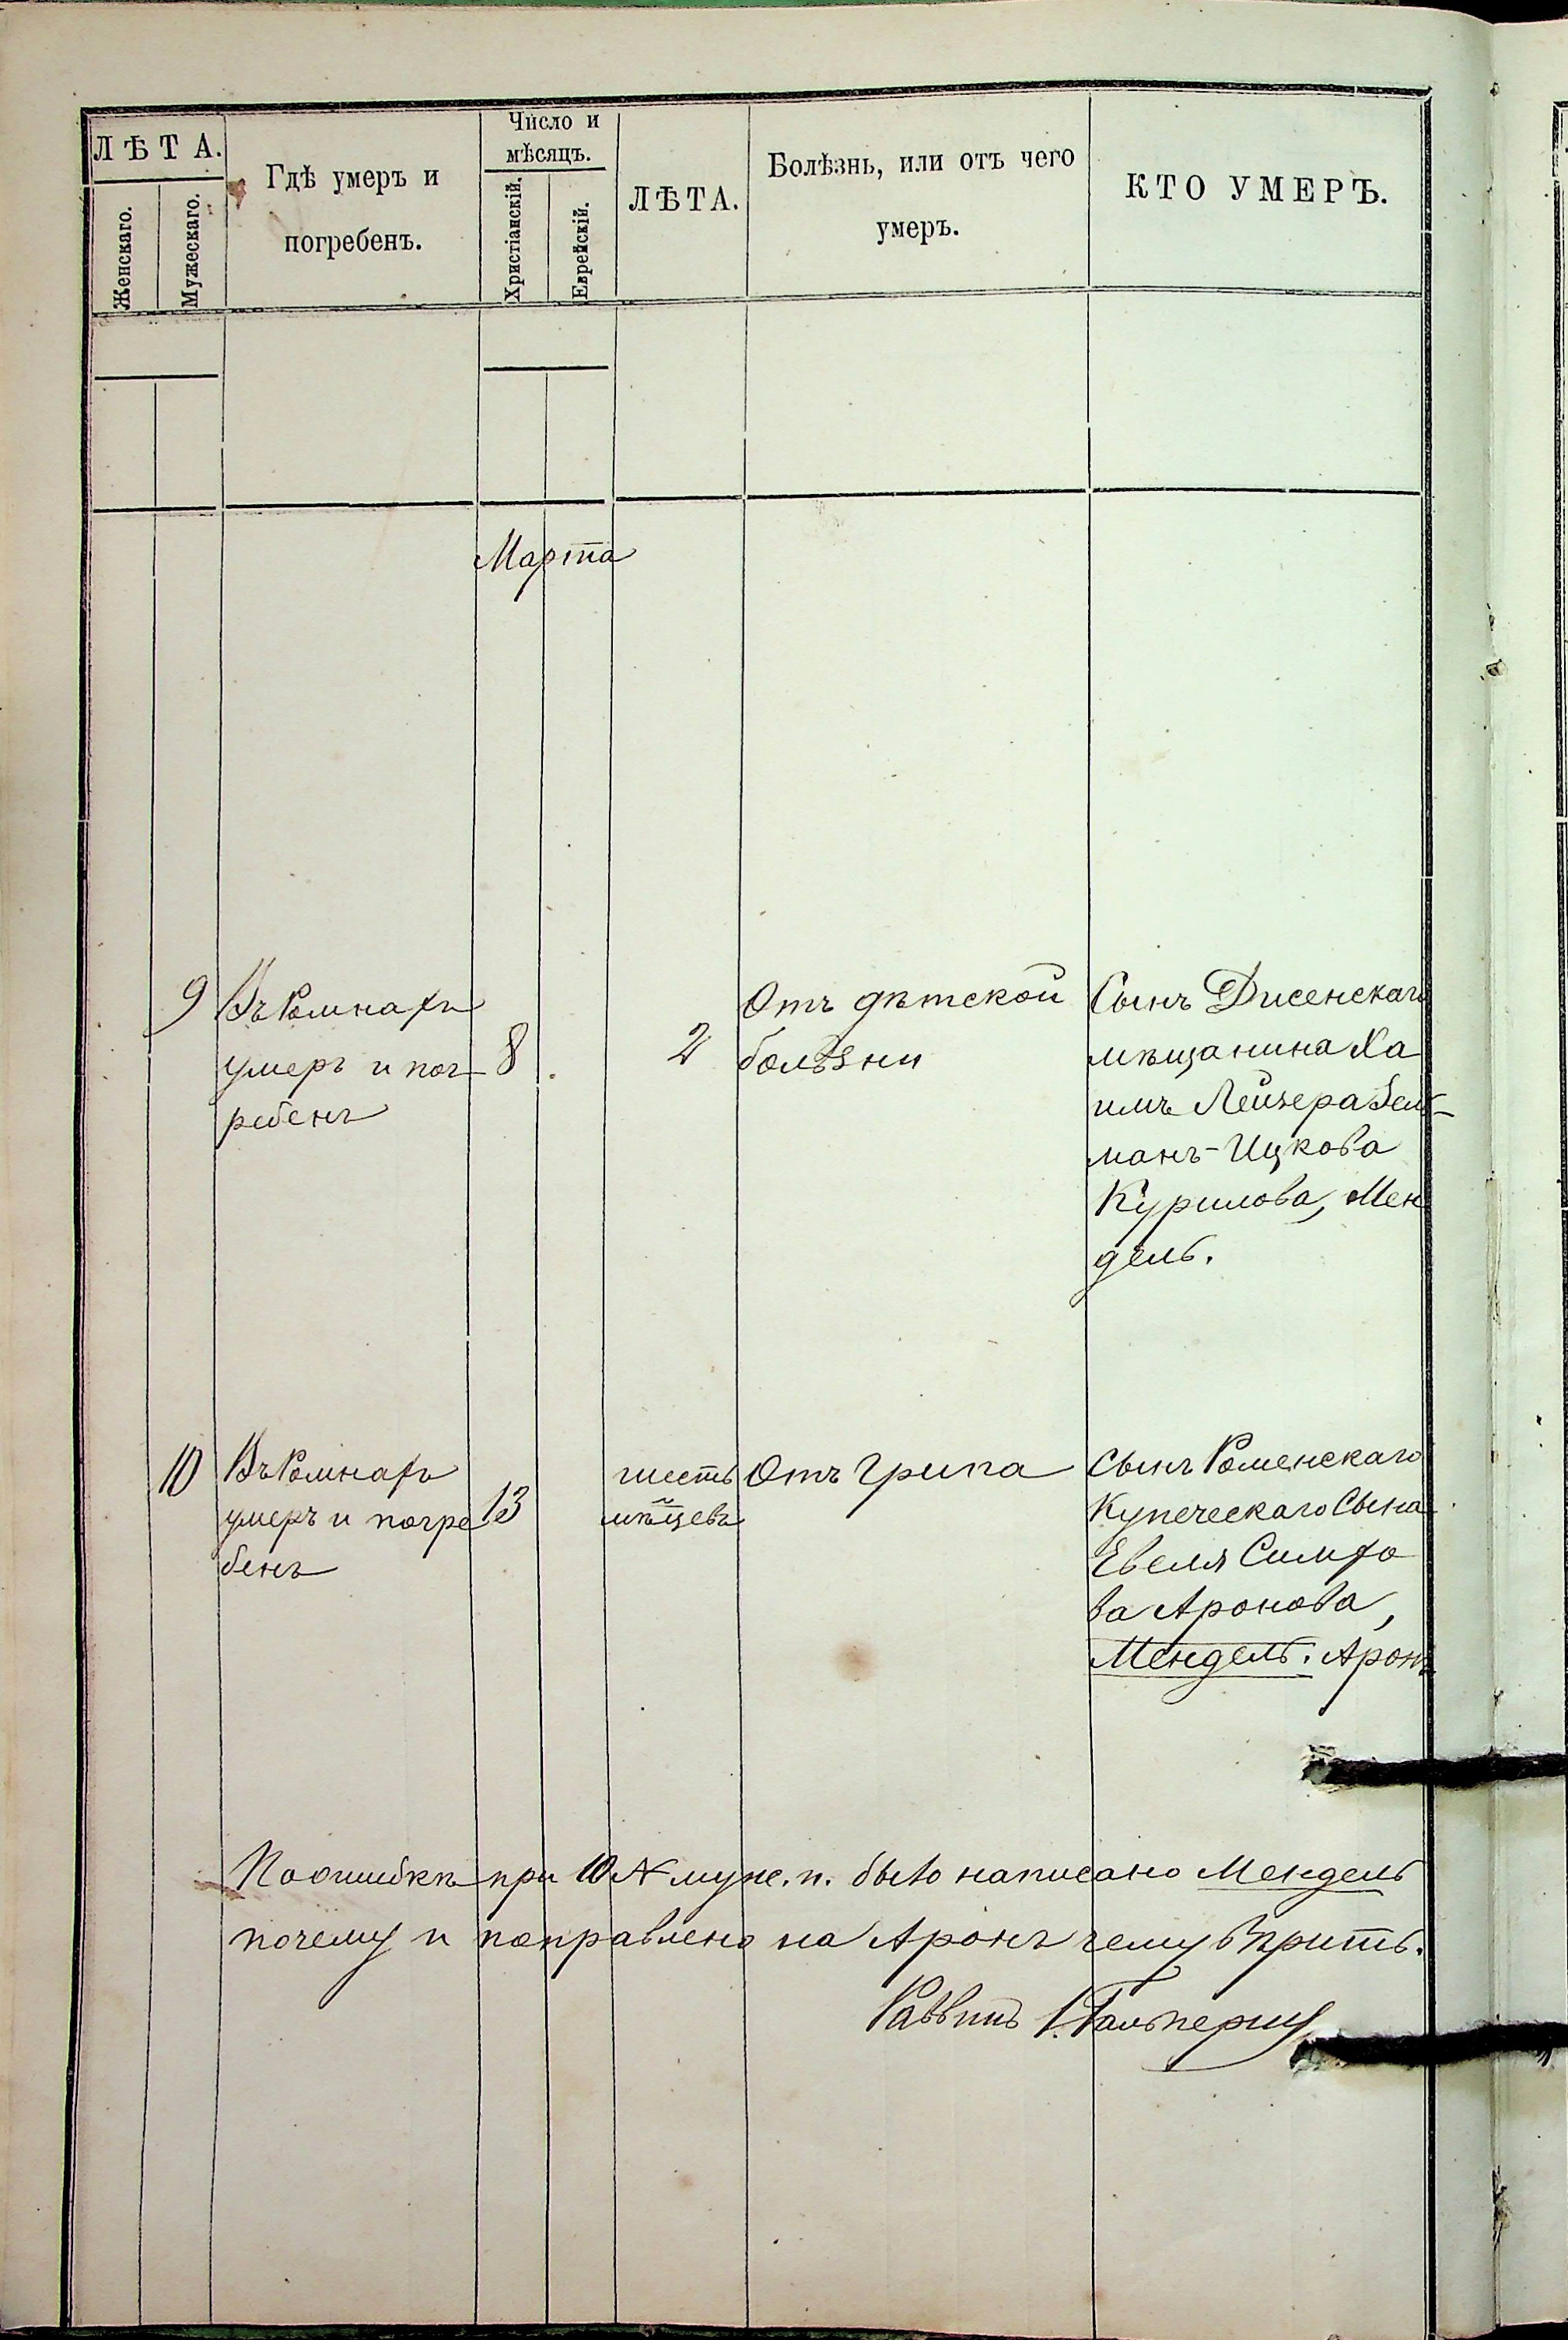 ЛѢТА.
Женскаго.
Мужескаго.
Гдѣ умеръ и
погребенъ.
Число и
мѣсяцъ.
Христіанскій.
Еврейскій.
ЛѢТА.
Болѣзнь, или отъ чего
умеръ.
КТО УМЕРЪ.
Марта
9
Въ Ромнахъ
умеръ и пог-
ребенъ
8
2
Отъ дѣтской
болѣзни
Сынъ Дисенскаго
мѣщанина Ха
имъ Лейзера Зель-
манъ-Ицкова
Курилова, Мен
дель.
10
Въ Ромнахъ
умеръ и погре
бенъ
13
шесть
мѣцевъ
Отъ Грипа
Сынъ Роменскаго
Купеческаго Сына
Евеля Симхо
ва Аронова,
Мендель. Аронъ
По ошибкѣ при 10 № муже. п. было написано Мендель
почему и поправлено на Аронъ чему вѣрить.
Раввинъ Гальперин